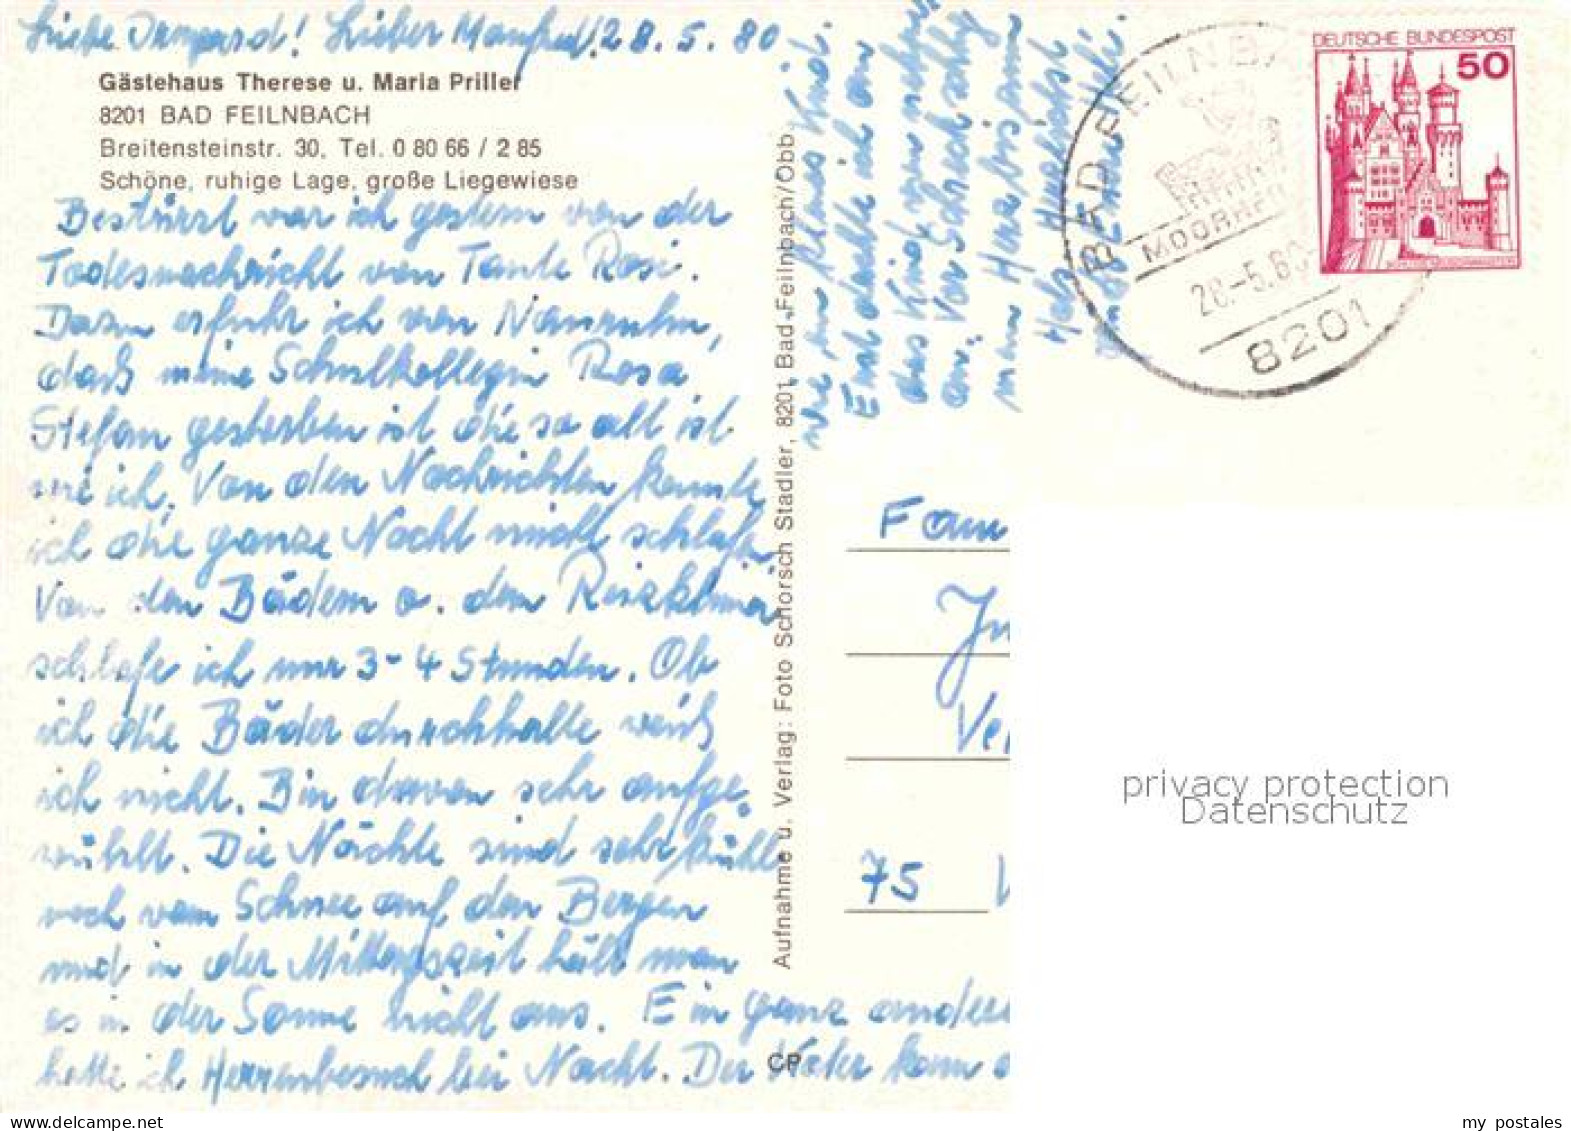 Liebe Irmgard! Lieber Manfred! 28.5.80
Gästehaus Therese u. Maria Priller
8201 BAD FEILNBACH
Breitensteinstr. 30, Tel. 0 80 66 / 2 85
Schöne, ruhige Lage, große Liegewiese
Bestürzt war ich gestern von der
Todesnachricht von Tante Rosi.
Dazu erfuhr ich von
daß meine Schulkollegin Rosa
Stefan gestorben ist die so alt ist
wie ich. Von den Nachrichten konnte
ich die ganze Nacht nicht schlafen.
Von den Bädern o. dem Reizklima
schlafe ich nur 3-4 Stunden. Ob
ich die Bäder durchhalte weiß
ich nicht. Bin davon sehr aufge-
wühlt. Die Nächte sind sehr kühl
noch vom Schnee auf den Bergen
und in der Mittagszeit hält man
es in der Sonne nicht aus. Ein ganz andere
hatte ich Herrenbesuch bei Nacht. Der Kater kam
wie ein kleines Kind.
Erst dachte ich an
das Kind von nebenan
an. Vor Schreck schlug
mein Herz bis zum
Hals Herzlichst
Aufnahme u. Verlag: Foto Schorsch Stadler, 8201 Bad Feilnbach/Obb.
CP
DEUTSCHE BUNDESPOST
50
BAD FEILNBA
MOORHE
28.-5.80
8201
Fam
Ver
75
privacy protection
Datenschutz
my_postales